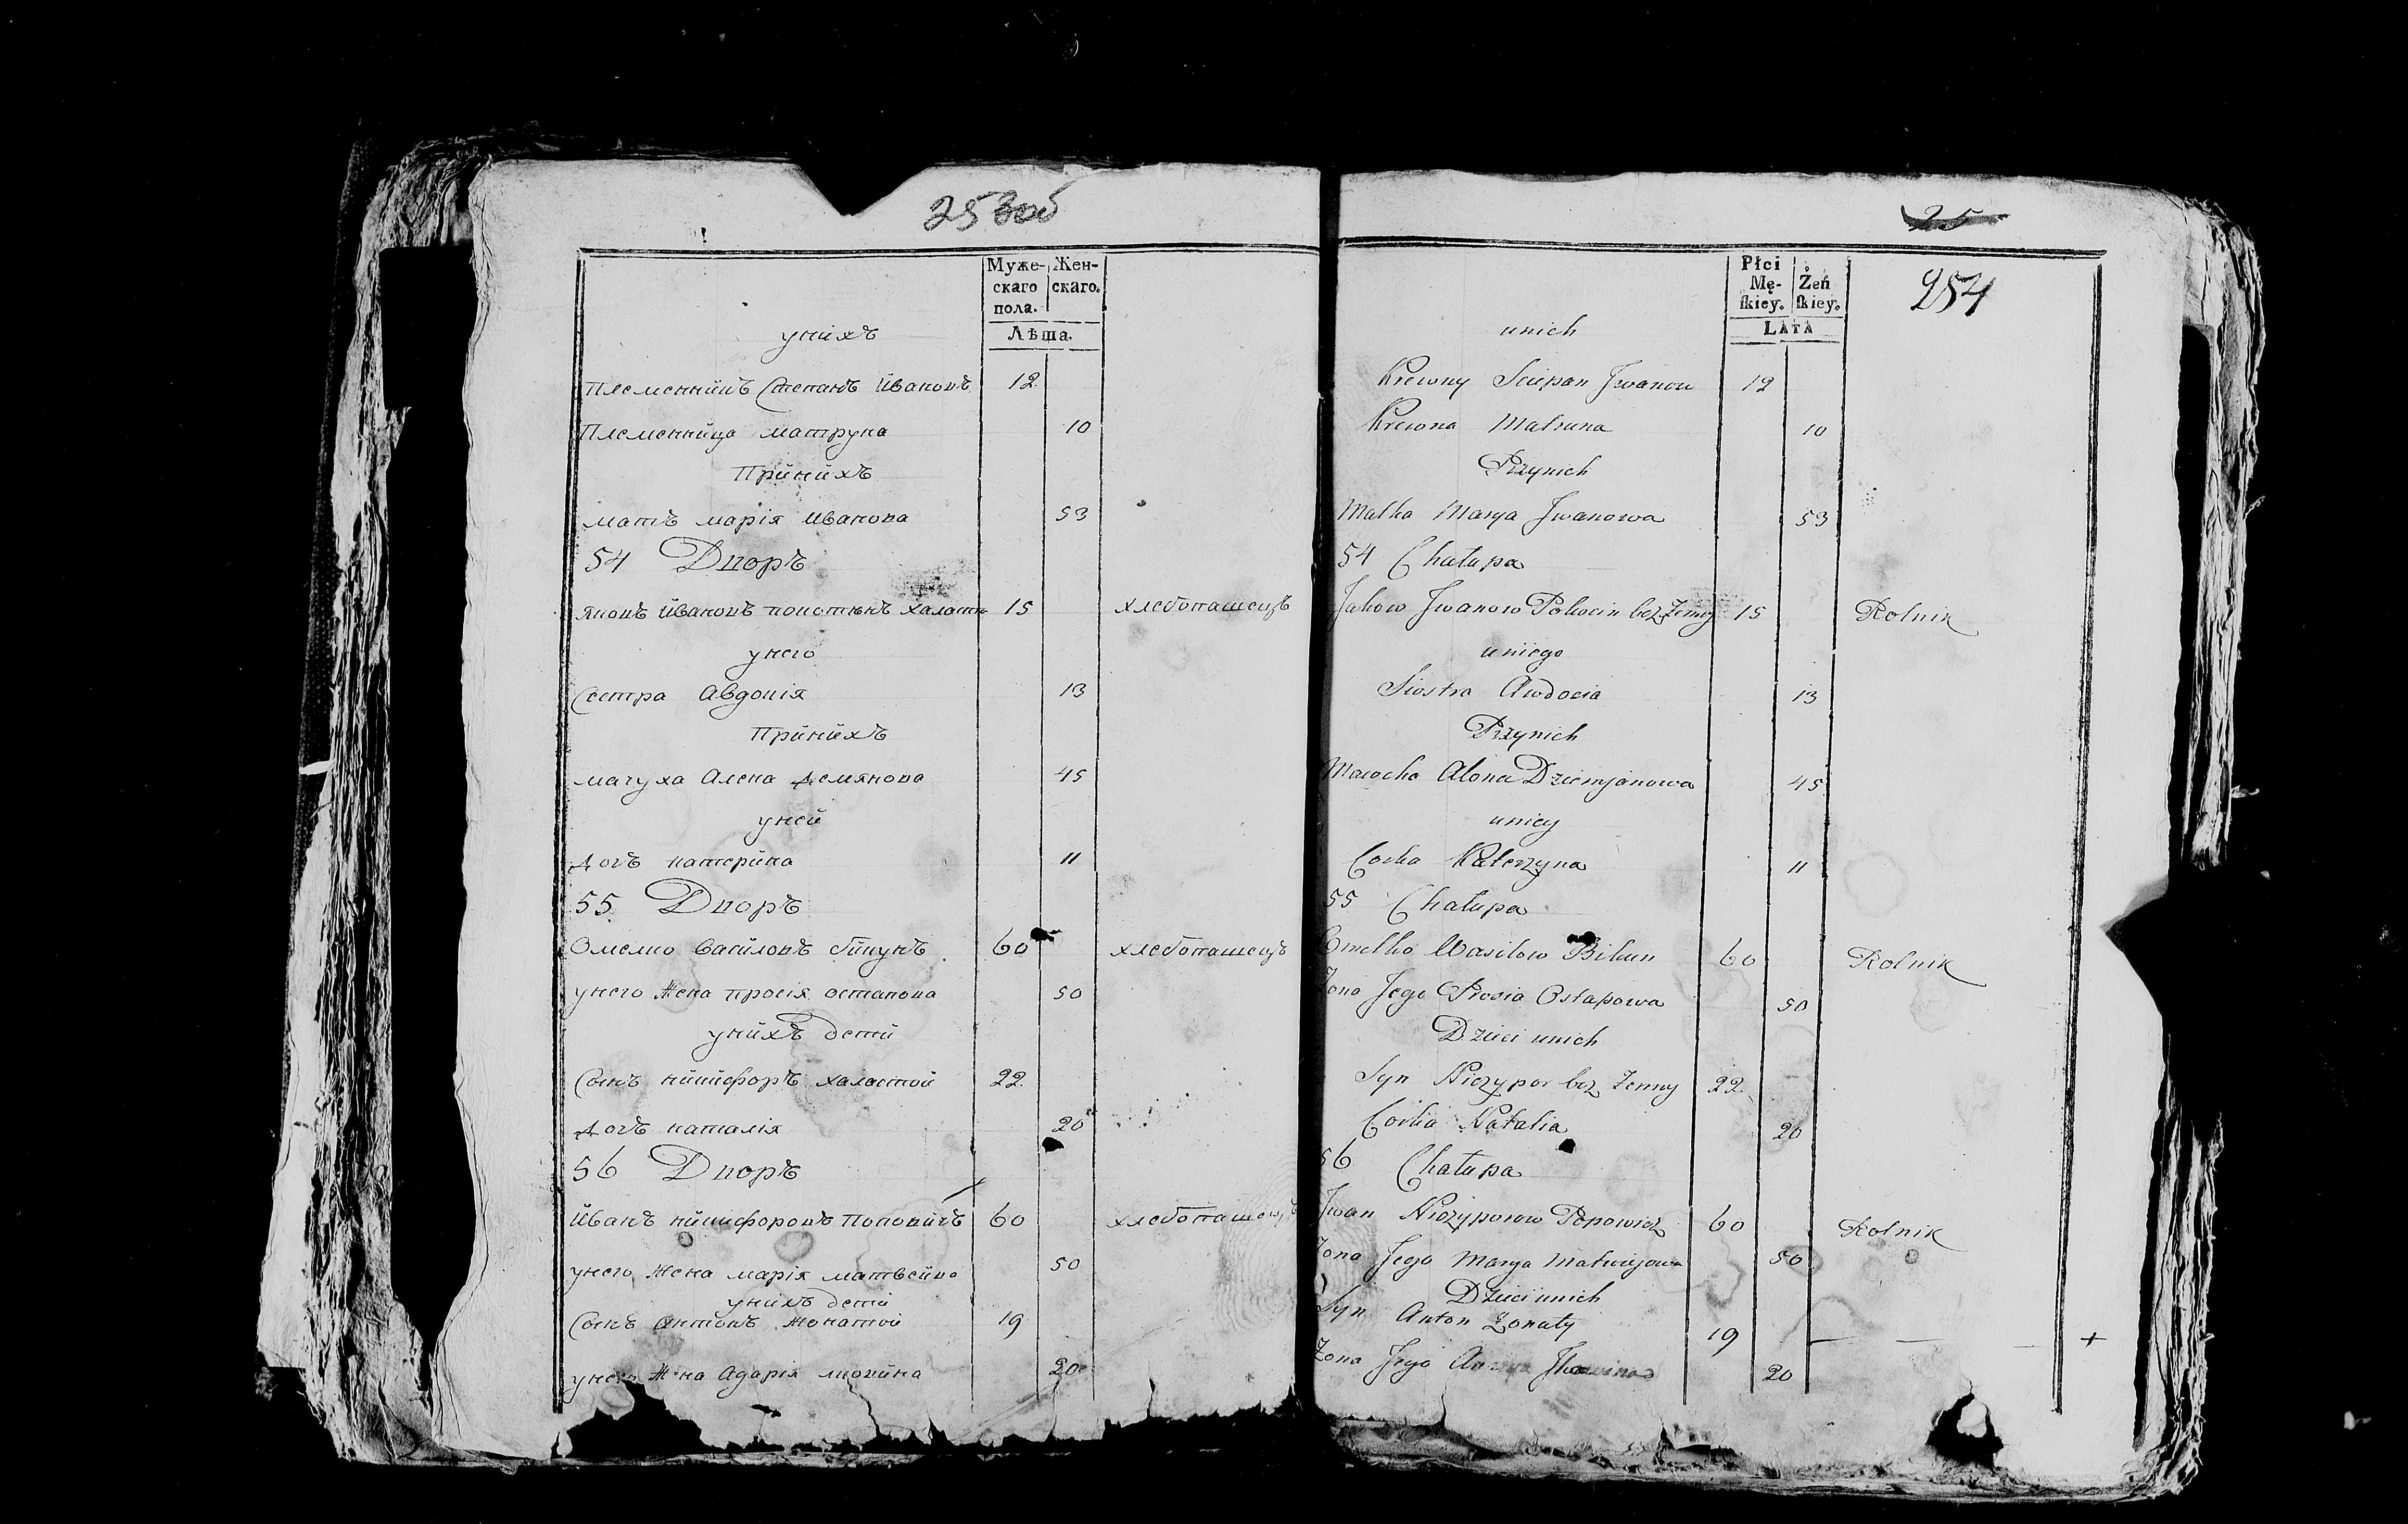 253об
Муже-скаго пола. Жен-скаго.
Лѣта.
унихъ
Племенникъ Степанъ Ивановъ 12
Племенница матруна 10
Принихъ
мать марія Иванова 53
54 Дворъ
Яковъ Ивановъ халасты 15 хлебопашецъ
унего
Сестра Авдокія 13
Принихъ
мачуха Алена Демянова 45
уней
Дочъ катерина 11
55. Дворъ
Омелко Василовъ бикунъ 60 хлебопашецъ
унего жена прося остапова 50
унихъ дети
Сынъ никифоръ халостой 22
Дочъ наталія 20
56 Дворъ
Иванъ никифоровъ Поповичъ 60 хлебопашецъ
унего жена марія матвейва 50
унихъ дети
Сынъ Антонъ жонатой 19
унего жена Адарія 20
25
254
Płci Mę-skiey. Żeń skiey.
LATA
unich
Krewny Sciepan Jwanow 12
Krewna Matruna 10
Przynich
Matka Marya Jwanowa 53
54 Chałupa
Jakow Jwanow bez Żenny 15 Rolnik
uniego
Siostra Awdocia 13
Przynich
Macocha Alona Dziemjanowa 45
uniey
Corka Katerzyna 11
55 Chałupa
Omelko Wasilow Bikun 60 Rolnik
Żona Jego Prosia Ostapowa 50
Dzieci unich
Syn Niczypor bez Żenny 22
Corka Natalia 20
56 Chałupa
Jwan Niczyporow Popowicz 60 Rolnik
Żona Jego Marya Matwiejowa 50
Dzieci unich
Syn Anton Żonaty 19 +
Żona Jego 20